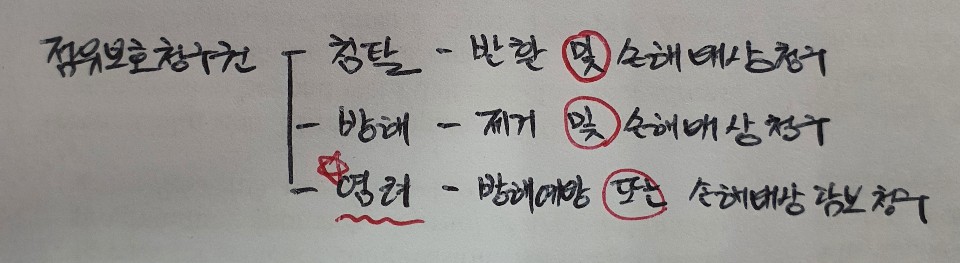 점유보호청구권 - 침탈 - 반환 및 손해배상청구
- 방해 - 제거 및 손해배상청구
- 염려 - 방해예방 또는 손해배상담보청구